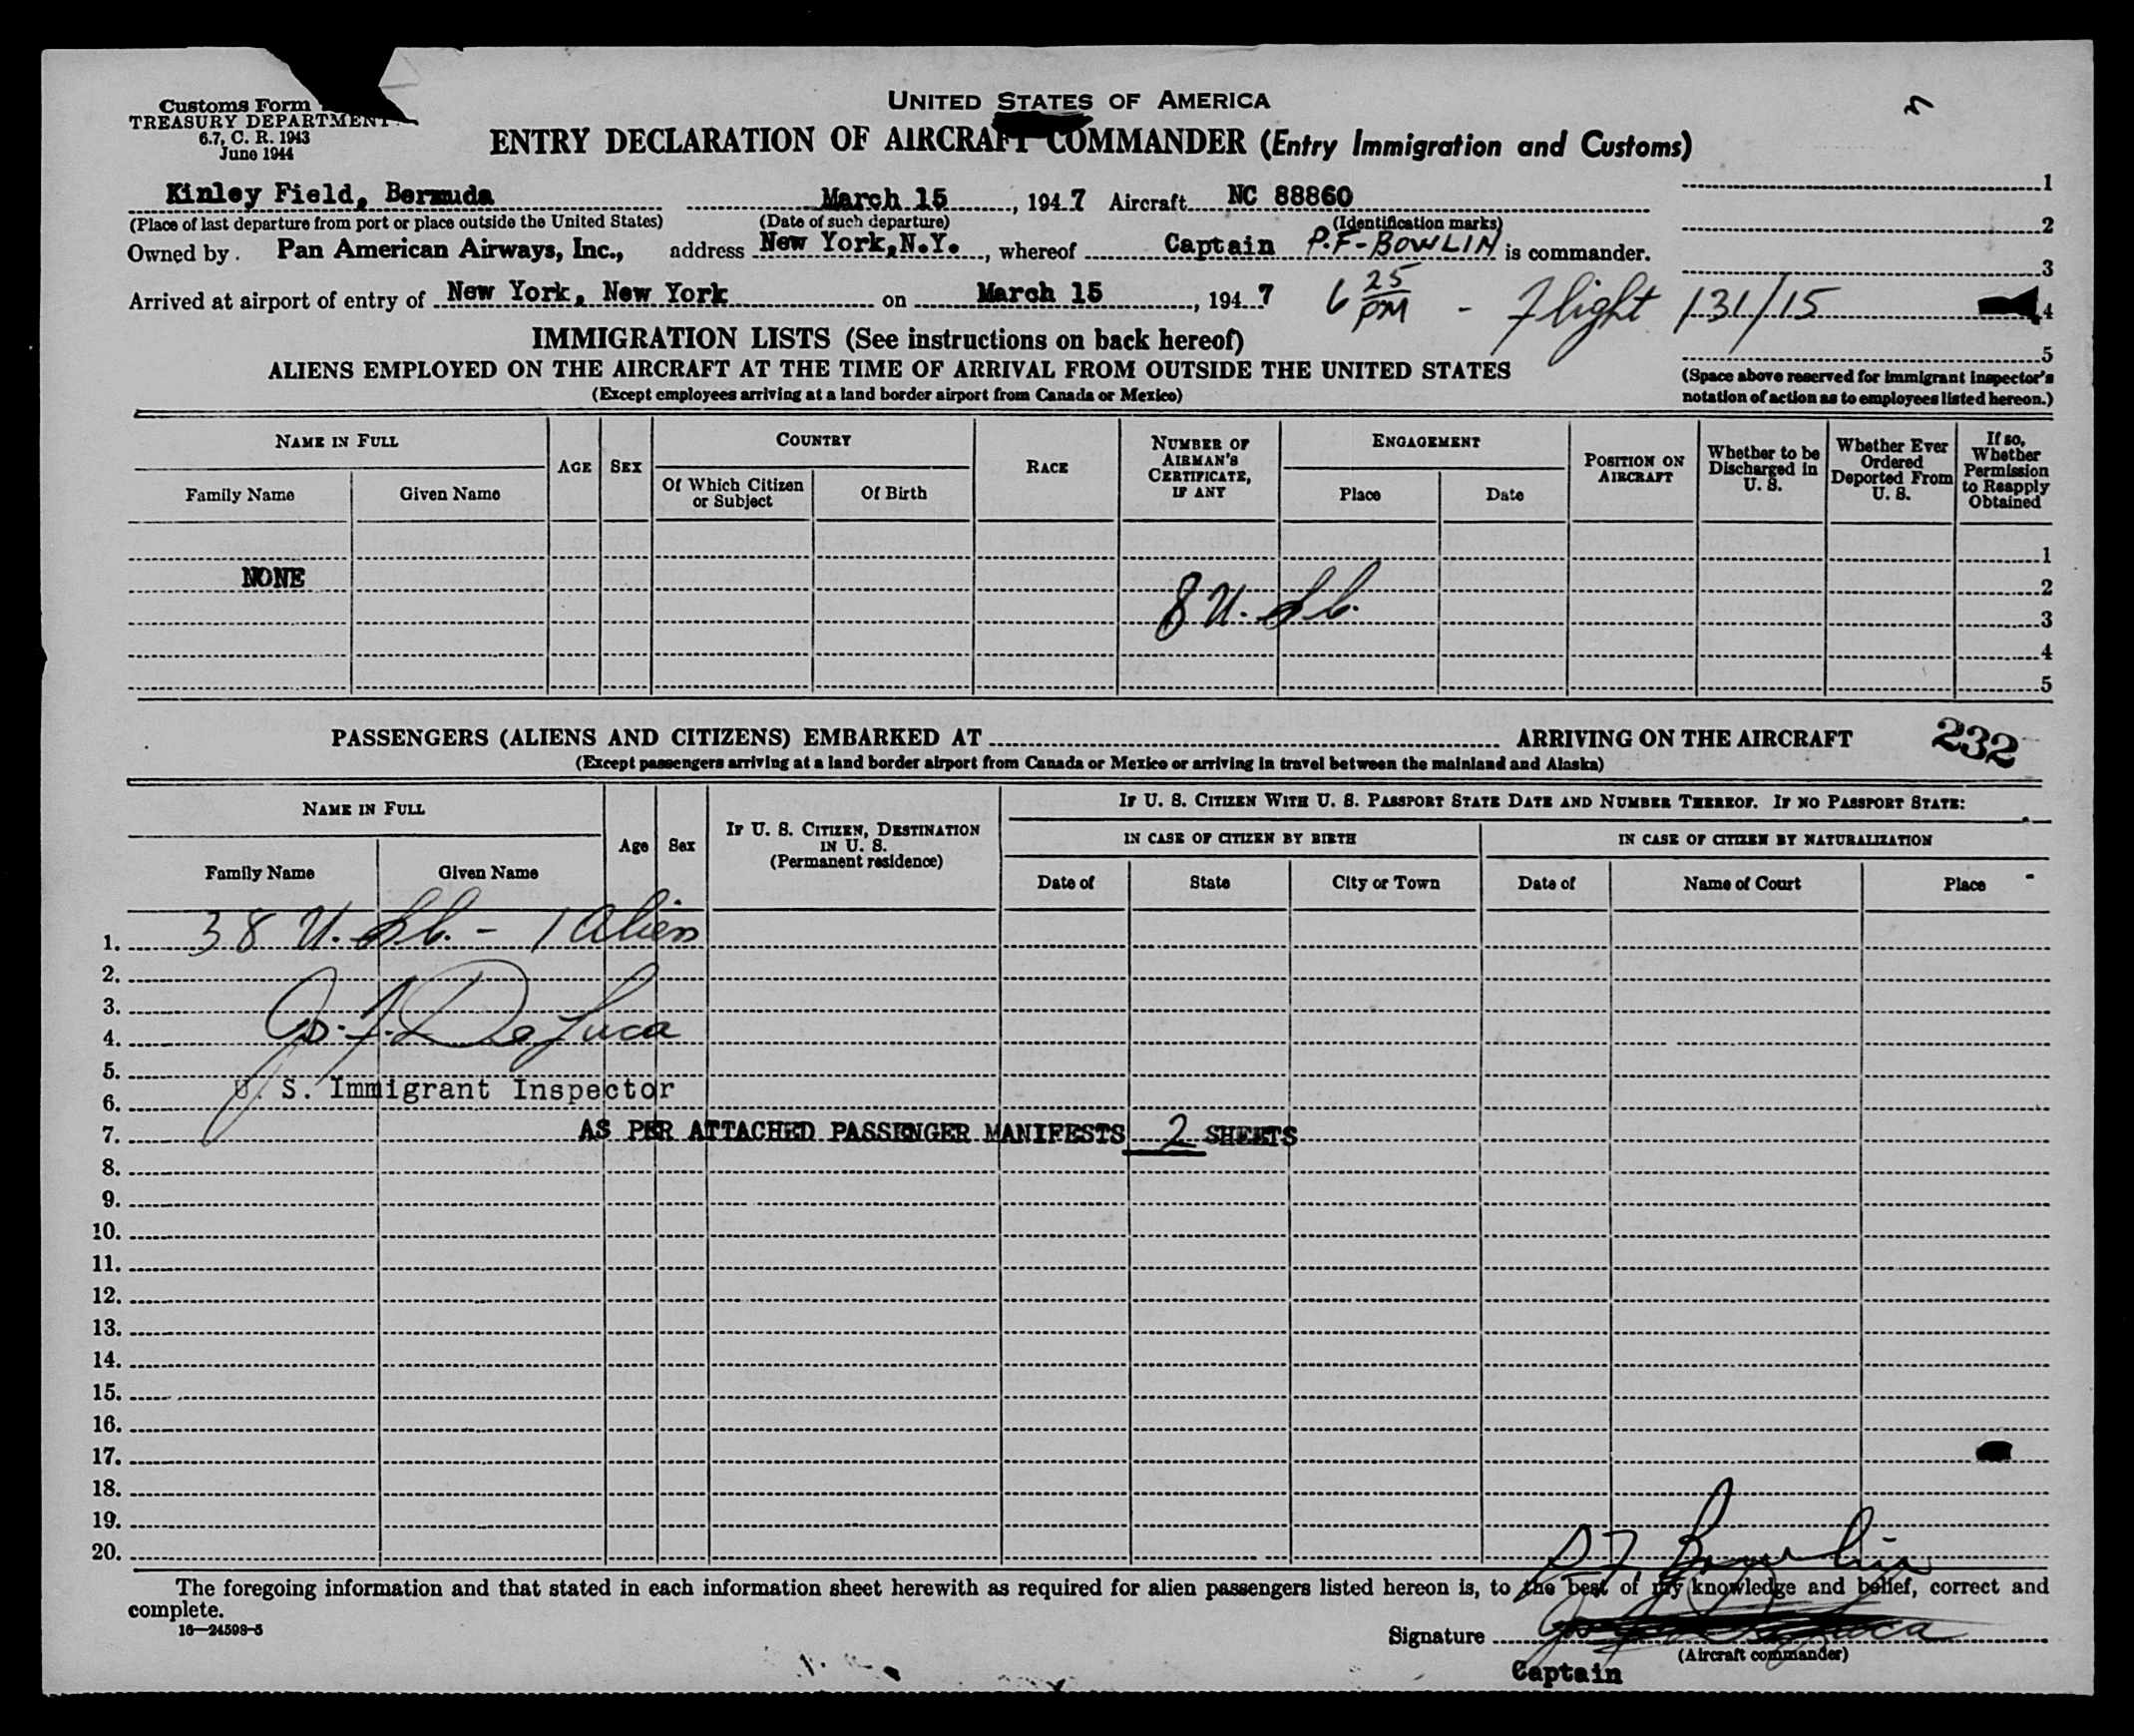 UNITED STATES OF AMERICA
Customs Form
TREASURY DEPARTMENT
6.7, C. R. 1943
June 1944
ENTRY DECLARATION OF AIRCRAFT COMMANDER (Entry Immigration and Customs)
Kinley Field, Bermuda March 15, 1947 Aircraft NC 88860
(Place of last departure from port or place outside the United States) (Date of such departure) (Identification marks)
Owned by. Pan American Airways, Inc., address New York, N.Y., whereof Captain P.F-BOWLIN is commander.
Arrived at airport of entry of New York, New York on March 15, 1947 6 25 PM - Flight 131/15
1
2
3
4
5
(Space above reserved for immigrant inspector's
notation of action as to employees listed hereon.)
IMMIGRATION LISTS (See instructions on back hereof)
ALIENS EMPLOYED ON THE AIRCRAFT AT THE TIME OF ARRIVAL FROM OUTSIDE THE UNITED STATES
(Except employees arriving at a land border airport from Canada or Mexico)
NAME IN FULL
Family Name
Given Name
AGE
SEX
COUNTRY
Of Which Citizen or Subject
Of Birth
RACE
NUMBER OF AIRMAN'S CERTIFICATE, IF ANY
ENGAGEMENT
Place
Date
POSITION ON AIRCRAFT
Whether to be Discharged in U. S.
Whether Ever Ordered Deported From U. S.
If so, Whether Permission to Reapply Obtained
1
NONE 2
8 U. 3
4
5
PASSENGERS (ALIENS AND CITIZENS) EMBARKED AT ARRIVING ON THE AIRCRAFT 232
(Except passengers arriving at a land border airport from Canada or Mexico or arriving in travel between the mainland and Alaska)
NAME IN FULL
Family Name
Given Name
Age
Sex
IF U. S. CITIZEN, DESTINATION IN U. S.
(Permanent residence)
IF U. S. CITIZEN WITH U. S. PASSPORT STATE DATE AND NUMBER THEREOF. IF NO PASSPORT STATE:
IN CASE OF CITIZEN BY BIRTH
Date of
State
City or Town
IN CASE OF CITIZEN BY NATURALIZATION
Date of
Name of Court
Place
1. 38 U. - 1 Alien
2.
3.
4. De Luca
5.
U. S. Immigrant Inspector
6.
7. AS PER ATTACHED PASSENGER MANIFESTS 2 SHEETS
8.
9.
10.
11.
12.
13.
14.
15.
16.
17.
18.
19.
20.
P F Bowlin
The foregoing information and that stated in each information sheet herewith as required for alien passengers listed hereon is, to the best of my knowledge and belief, correct and
complete.
16—24598-5
Signature
(Aircraft commander)
Captain